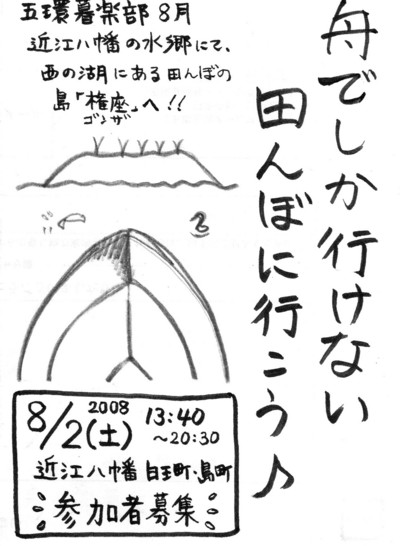 舟でしか行けない
田んぼに行こう♪
五環暮楽部 8月
近江八幡の水郷にて、
西の湖にある田んぼの
島「権座」へ!!
ゴンザ
8/2(土) 2008 13:40
～20:30
近江八幡 白王町・島町
参加者募集